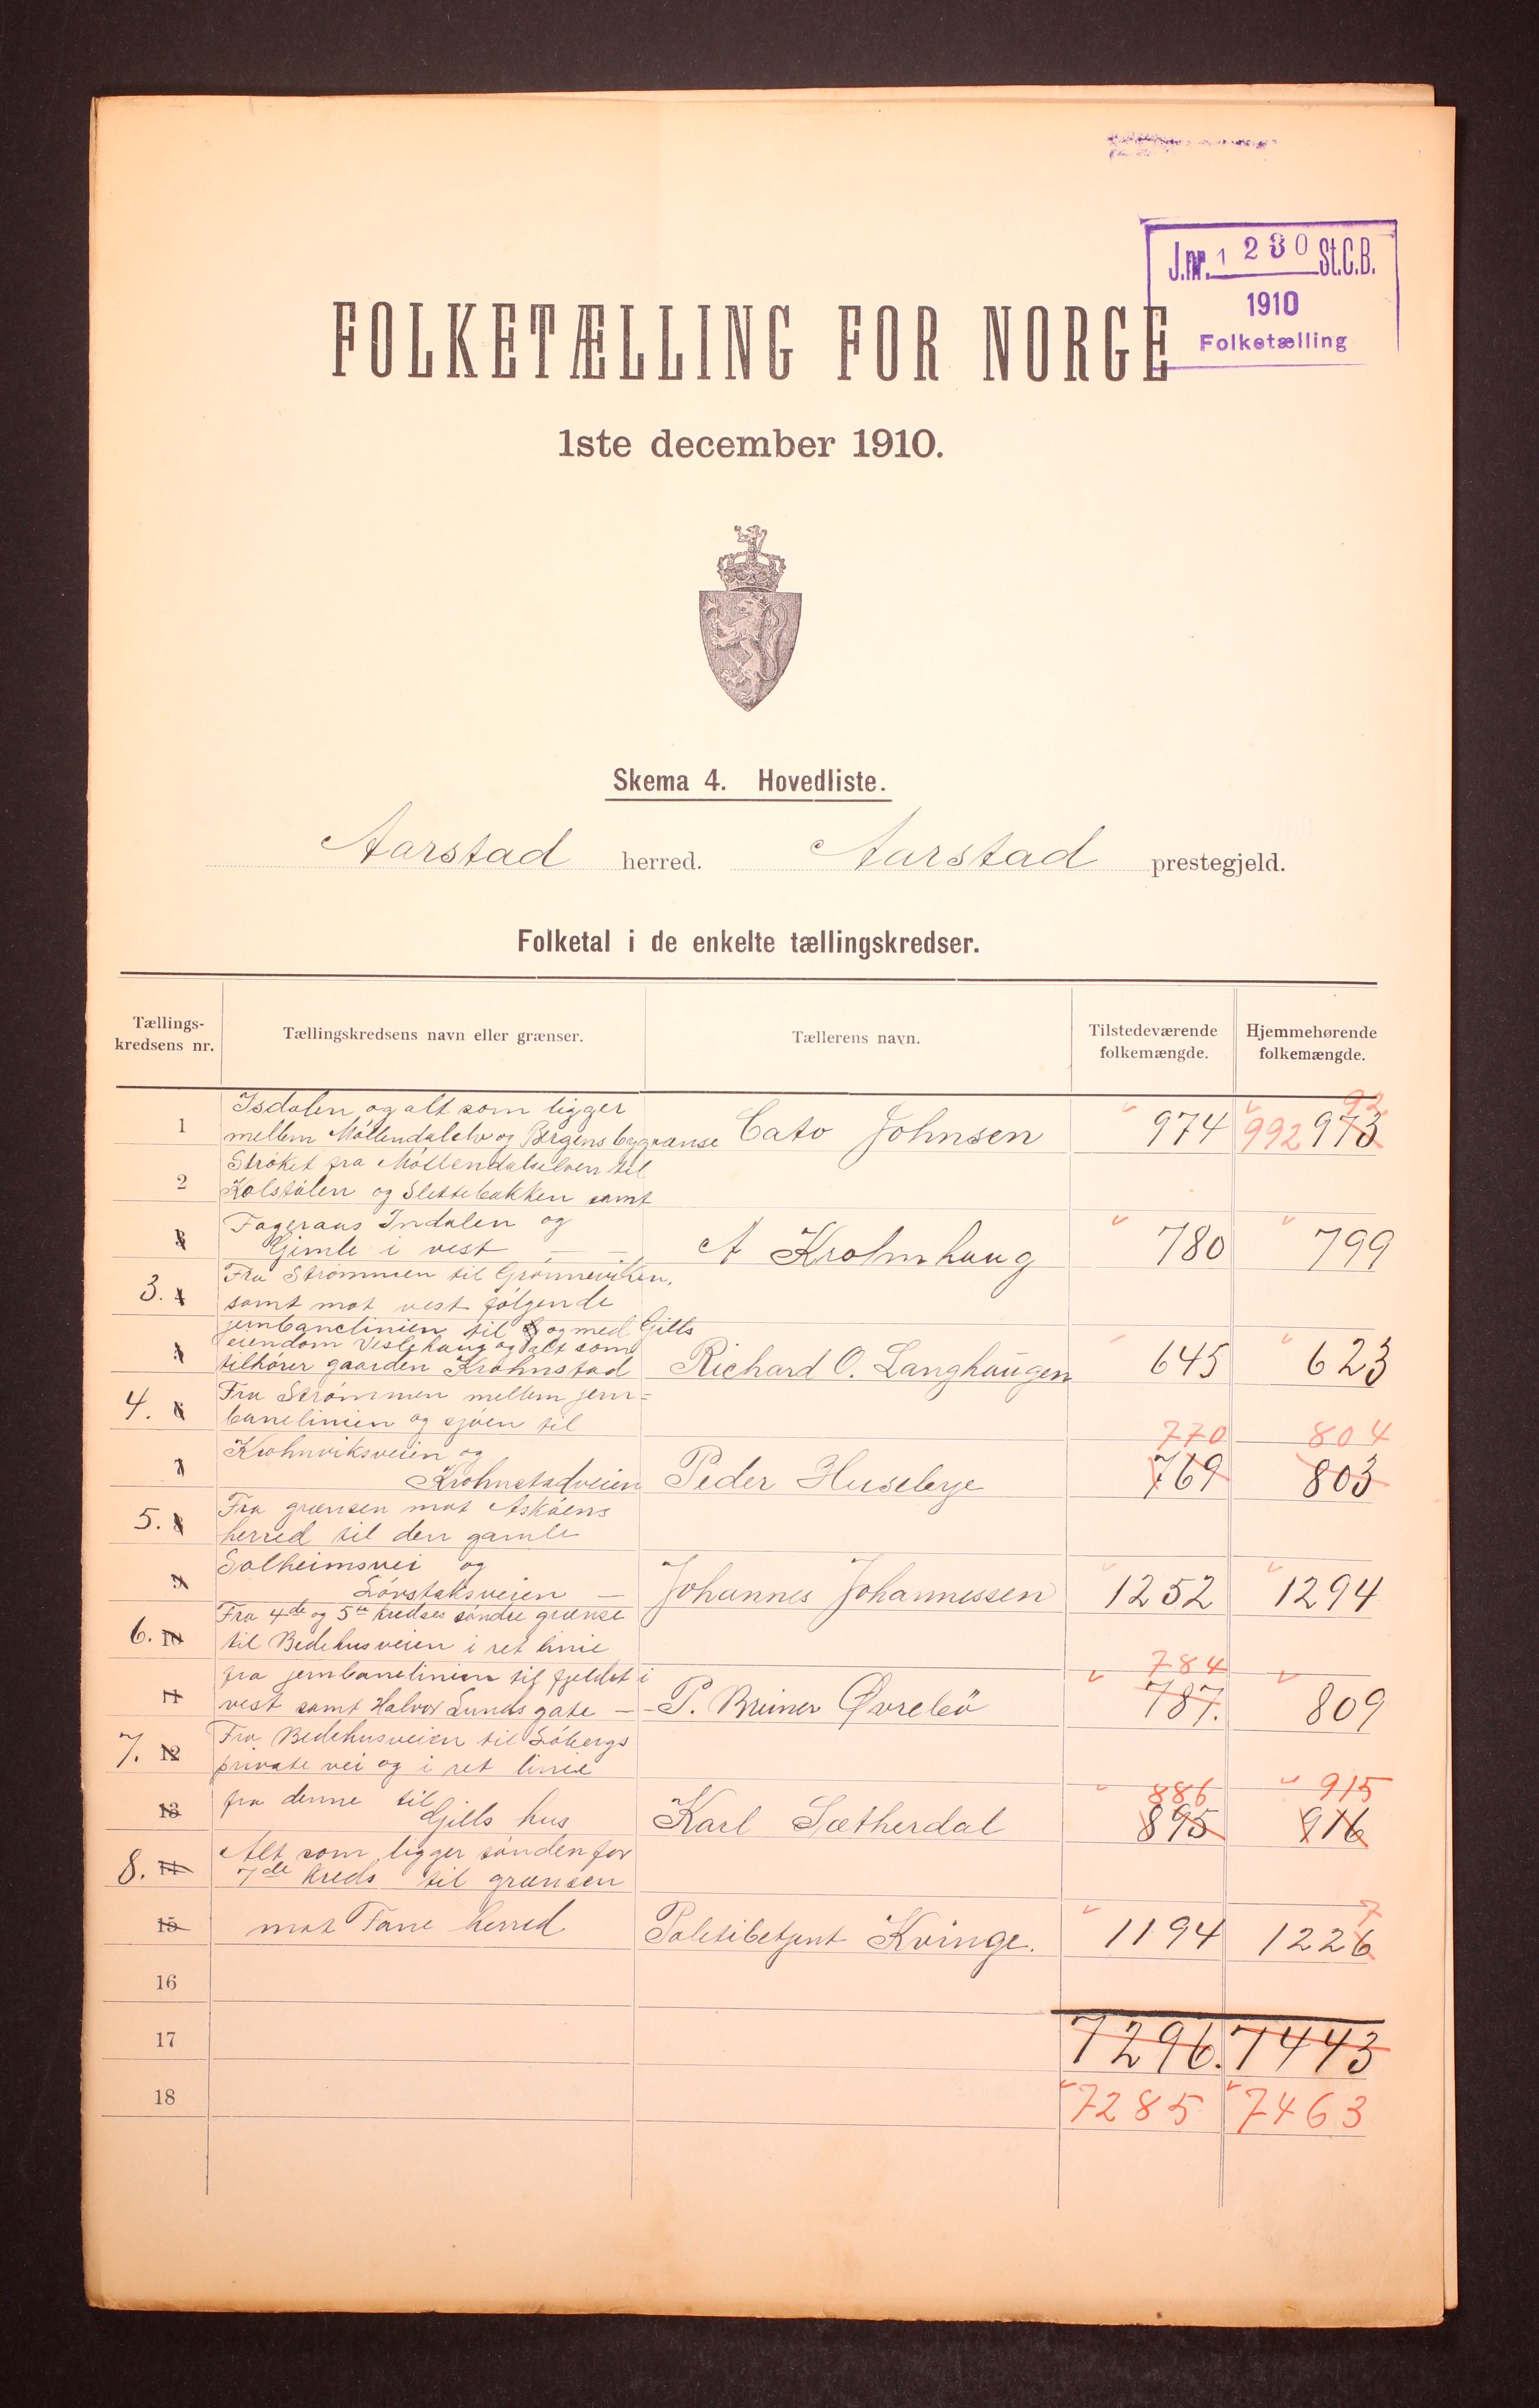 J.nr. 1 230 St.C.B.
1910
Folketælling
FOLKETÆLLING FOR NORGE
1ste december 1910.
Skema 4. Hovedliste.
Aarstad herred. Aarstad prestegjeld.
Folketal i de enkelte tællingskredser.
Tællings-
kredsens nr.
Tællingskredsens navn eller grænser.
Tællerens navn.
Tilstedeværende
folkemængde.
Hjemmehørende
folkemængde.
92
Isdalen og alt som ligger
1 mellem Möllendalelv og Bergens bygrænse Cato Johnsen 974 992 973
Ströket fra Möllendalselven til
2 Kolstölen og Slettebakken samt
Fageraas Indalen og
3 Gimle i vest — — A Krohnhaug 780 799
Fra Strömmen til Grönneviken,
3. 4 samt mot vest fölgende
jernbanelinien til og med Gills
5 eiendom Veslehaug og alt som
tilhörer gaarden Krohnstad Richard O. Langhaugen 645 623
Fra Strömmen mellem jern=
4. 6 banelinien og sjöen til
770 804
Krohnviksveien og
7 Krohnstadveien Peder Husebye 769 803
Fra grænsen mot Asköens
5. 8 herred til den gamle
Solheimsvei og
9 Lövstaksveien — Johannes Johannessen 1252 1294
Fra 4de og 5te kredses söndre grænse
6. 10 til Bedehusveien i ret linie
784
fra jernbanelinien til fjeldet i
11 vest samt Halvor Lunds gate — P. Breiner Øvrebö 787. 809
Fra Bedehusveien til Löbergs
7. 12 private vei og i ret linie
886 915
13 fra denne til Gjills hus Karl Sætherdal 895 916
Alt som ligger sönden for
8. 14 7de kreds til grænsen
7
15 mot Fane herred Politibetjent Kvinge. 1194 1226
16
17 7296. 7443
18 7285 7463